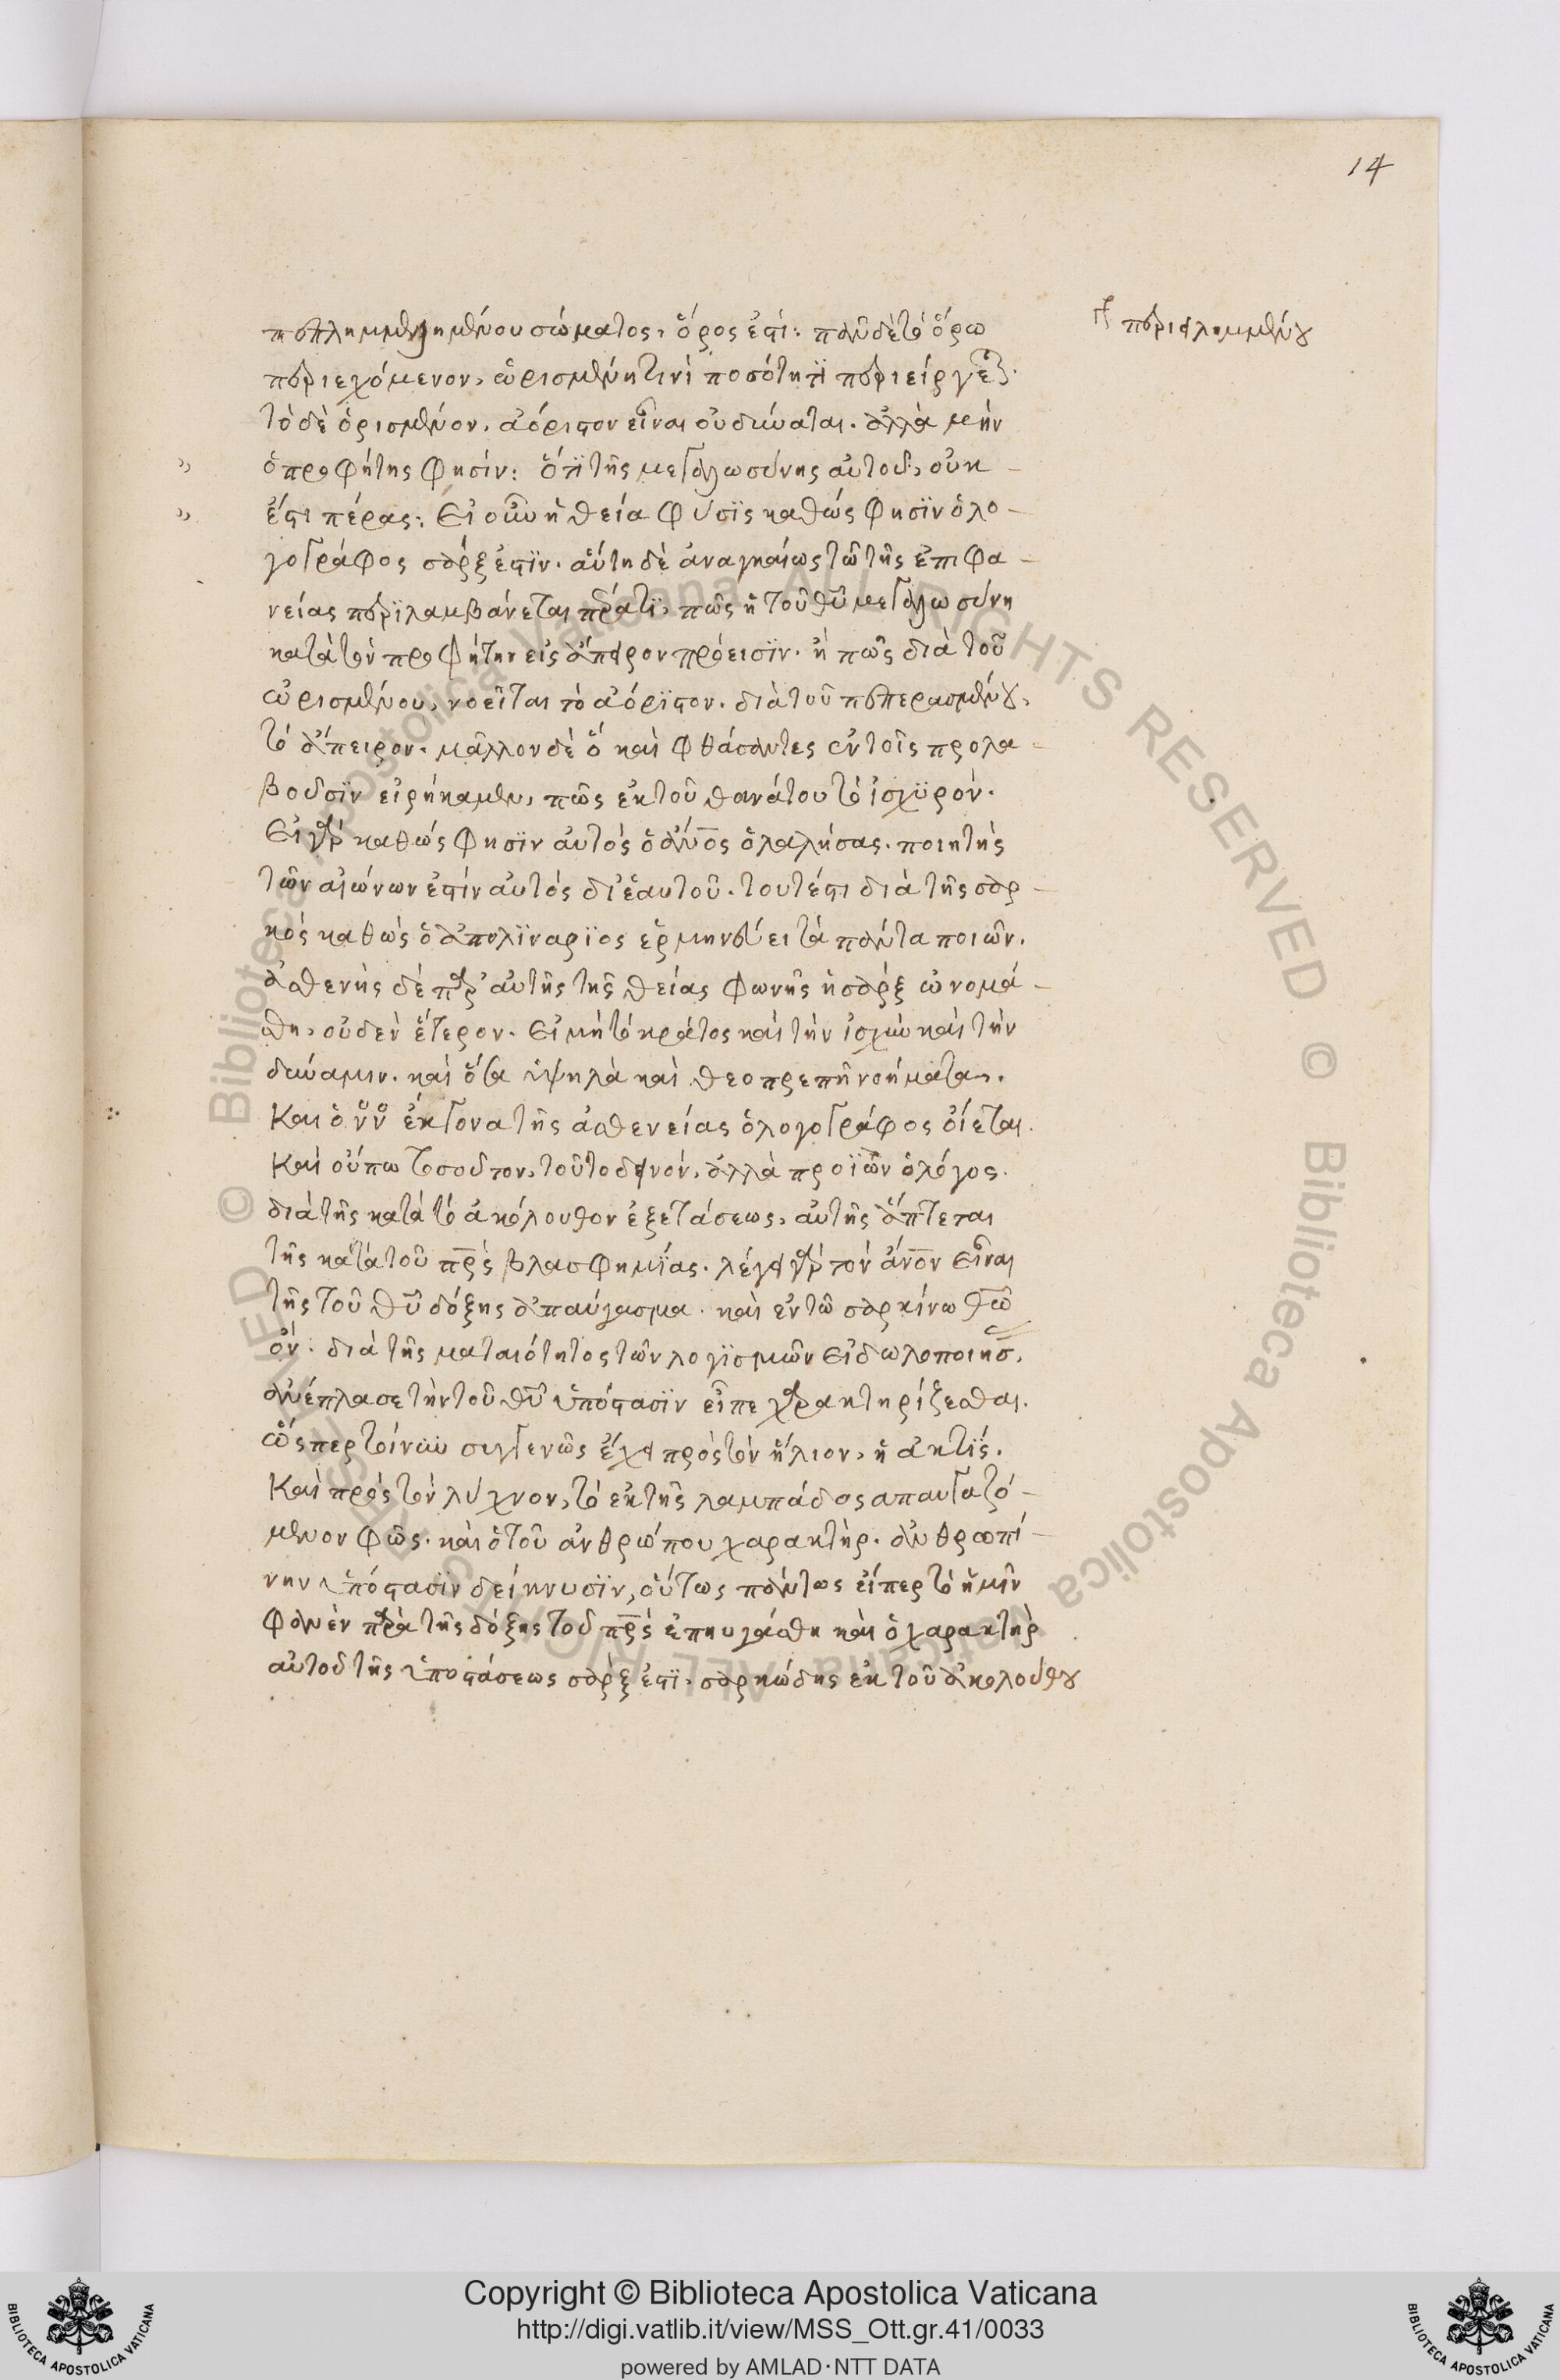 14
πεπλημμελημένου σώματος, ὅρος ἐστί: πᾶν δὲ τὸ ὅρω
περιειλημμένου
περιεχόμενον, ὡρισμένη τινὶ ποσότητι περιείργεται.
τὸ δὲ ὁρισμένον, ἀόριστον εἶναι οὐ δύναται. ἀλλὰ μὴν
ὁ προφήτης φησίν: ὅτι τῆς μεγαλωσύνης αὐτοῦ, οὐκ
ἔστι πέρας: Εἰ οὖν ἡ θεία φύσϊς καθώς φησϊν ὁ λο-
γογράφος σάρξ ἐστϊν. αὕτη δὲ ἀναγκαίως τῶ τῆς ἐπιφα-
νείας περϊλαμβάνεται πέρατϊ, πῶς ἡ τοῦ θῦ μεγαλωσύνη
κατὰ τὸν προφήτην εἰς ἄπειρον πρόεισϊν. ἢ πῶς διὰ τοῦ
ὡρισμένου, νοεῖται τὸ ἀόρϊστον. διὰ τοῦ πεπερασμένου,
τὸ ἄπειρον. μᾶλλον δὲ ὅ καὶ φθάσαντες ἐν τοῖς προλα-
βοῦσϊν εἰρήκαμεν, πῶς ἐκ τοῦ θανάτου τὸ ἰσχϋρόν.
Εἰ γὰρ καθώς φησϊν αὐτὸς ὁ ἀνος ὁ λαλήσας. ποιητὴς
τῶν αἰώνων ἐστὶν αὐτὸς δι' ἑαυτοῦ. τουτέστι διὰ τῆς σαρ-
κός καθὼς ὁ ἀπολϊναρϊος ἑρμηνεύει τὰ πάντα ποιῶν.
ἀσθενὴς δὲ παρ' αὐτῆς τῆς θείας φωνῆς ἡ σάρξ ὠνομά-
σθη, οὐδὲν ἕτερον. εἰ μὴ τὸ κράτος καὶ τὴν ἰσχὺν καὶ τὴν
δύναμιν. καὶ ὅσα ὑψηλὰ καὶ θεοπρεπῆ νοήματα,.
Και ὁ νν ἔκγονα τῆς ἀσθενείας ὁ λογογράφος οἴεται.
Καὶ οὔπω τοσοῦτον, τοῦτο δεινόν, ἀλλὰ προϊὼν ὁ λόγος.
διὰ τῆς κατὰ τὸ ἀκόλουθον ἐξετάσεως, αὐτῆς ἅπτεται
τῆς κατὰ τοῦ πρς βλασφημϊας. λέγει γὰρ τὸν ἀνον εἶναι
τῆς τοῦ θῦ δόξης ἀπαύγασμα. καὶ ἐν τῶ σαρκίνω θῶ
ὃν: διὰ τῆς ματαιότητος τῶν λογϊσμῶν εἰδωλοποιησ.
ἀνέπλασε τὴν τοῦ θῦ ὑπόστασϊν εἶπε χαρακτηρίζεσθαι.
ὥςπερ τοίνυν συγγενῶς ἔχει πρὸς τὸν ἥλιον, ἡ ἀκτϊς.
Καὶ πρὸς τὸν λύχνον, τὸ ἐκ τῆς λαμπάδος απαυγαζό-
μενον φῶς. καὶ ὁ τοῦ ἀνθρώπου χαρακτὴρ. ἀνθρωπί-
νην ὑπόστασϊν δείκνυσϊν, οὕτως πάντως εἴπερ τὸ ἡμῖν
φανὲν παρὰ τῆς δόξης τοῦ πρς ἐπηυγάσθη καὶ ὁ χαρακτὴρ
αὐτοῦ τῆς ὑποστάσεως σάρξ ἐστϊ. σαρκώδης ἐκ τοῦ ἀκολούθου
Copyright © Biblioteca Apostolica Vaticana
http://digi.vatlib.it/view/MSS_Ott.gr.41/0033
powered by AMLAD·NTT DATA
BIBLIOTECA APOSTOLICA VATICANA
BIBLIOTECA APOSTOLICA VATICANA
© Biblioteca Apostolica Vaticana ALL RIGHTS RESERVED © Biblioteca Apostolica Vaticana ALL RIGHTS RESERVED